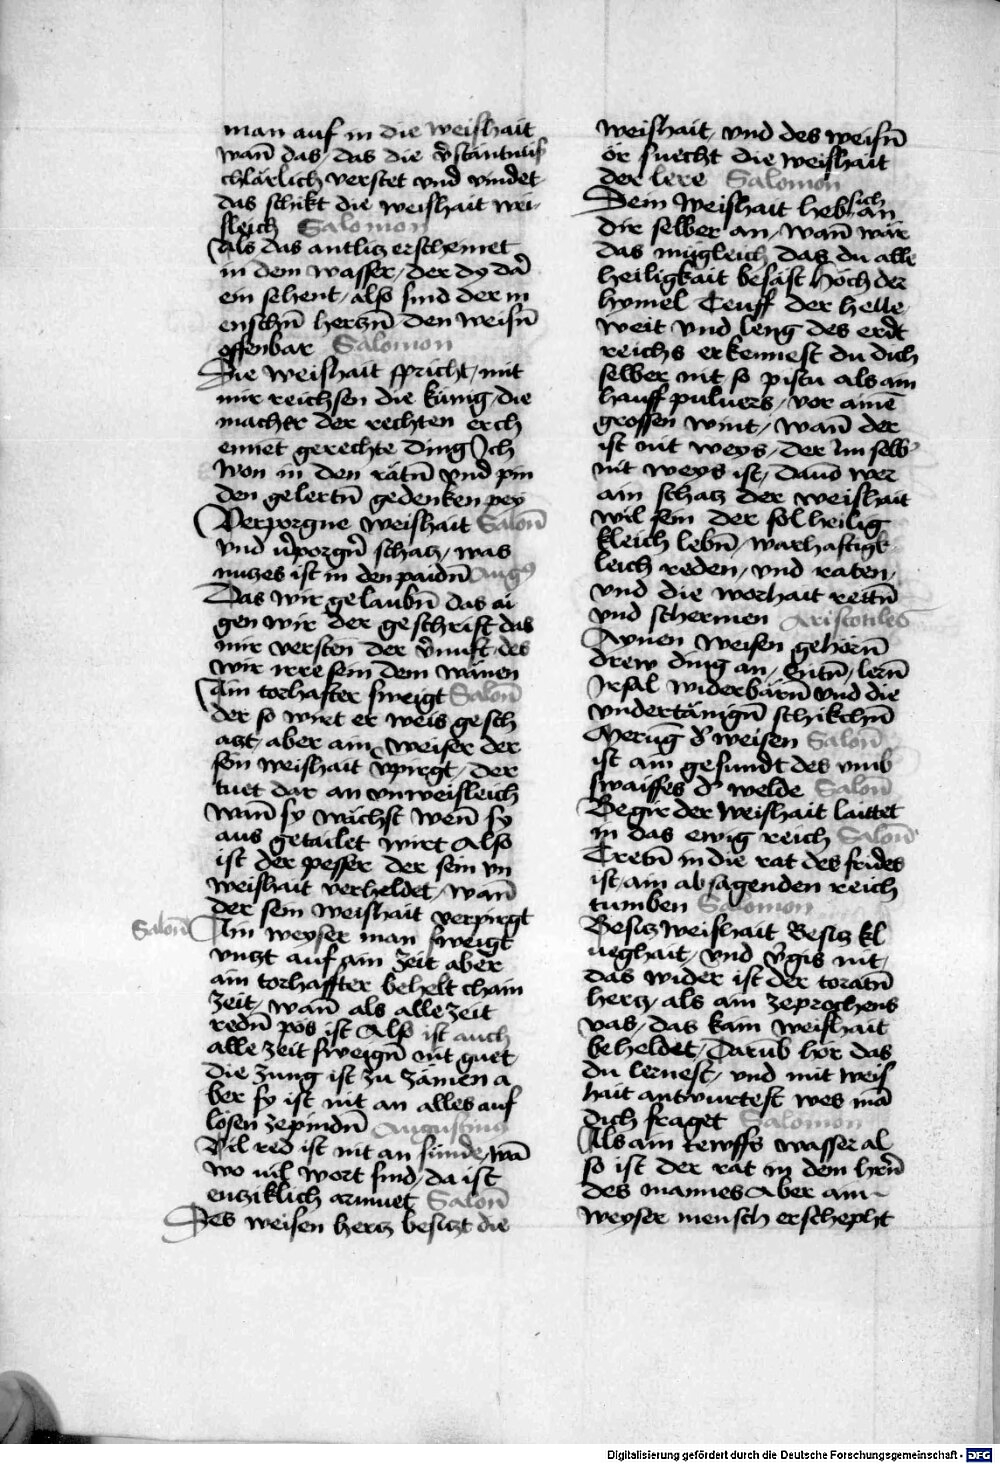 man auf in die weishait
wan̄ das das die v̄stäntnüß
chlärlich verstet vnd vindet
das schikt die weishait wei-
sleich Salomon
Als das antlitz erscheinet
in dem wasser, der dy dā
ein sehent, also sind der m
enschn̄ hertzn̄ den weisn̄
offenbar Salomon
Die weishait spricht, mit
mir reichsen die künig, die
machtr der rechten erch
ennet gerechte ding Ich
won in den rätn̄ vnd pin
den gelertn̄ gedenken pey
Verporgne weishait Salon̄
vnd v̄porgn̄ schatz, was
nutzes ist in den paidn̄ Aug9
Das wir gelaubn̄ das ai
gen wir der geschrift das
mir versten der v̄nuft, des
wir irre sein dem wänen
Ain torhafter sweigt Salon̄
der so wirt er weis gesch
atzt, aber ain weiser der
sein weishait v̄pirgt, der
tuet dar an vnweisleich
wan̄ sy wächst wen̄ sy
aus getailet wirt Also
ist der pesser der sein vn
weishait verheldet, wan̄
der sein weishait verpirgt
Salon̄ Ain weyser man sweigt
vntzt auf ain zeit aber
ain torhaffter behelt chain
zeit, wan̄ als alle zeit
redn̄ pös ist Also ist auch
alle zeit sweign̄ nit guet
die zung ist zu zämen a
ber sy ist nit an alles auf
lösen zepindn̄ Augustinus
Vil red ist nit an sünde, wā
wo vil wort sind, da ist
entziklich armuet Salon̄
Des weisen hertz besitzt die
weishait, vnd des weisn̄
ör suecht die weishait
der lere Salomon
Dein weishait heb sich an
dir selber an, wan̄ wär
das mügleich das du alle
heiligkait besäst höch der
hymel Teuff der helle
weit vnd leng des erdt
reichs erkennest du dich
selber nit so pistu als ain
hauff puluers, vor ainē
grossen wint, wan̄ der
ist nit weys, der im selb
nit weys ist, dauō wer
ain schatz der weishait
wil sein der sol heilig
kleich lebn̄, warhaftigk
leich reden, vnd raten,
vnd die worhait rettn̄
vnd schermen Aristotiles
Aynen weisen gehörn̄
drew ding an, lern̄
Irsal widerbärn̄ vnd die
vndertänign̄ schikchn̄
weisen Salon̄
ist ain gesundt des vmb
swaiffes welde Salon̄
Begir der weishait laittet
in das ewig reich Salon̄
Tretn̄ in die rat des frides
ist, ain absagenden reich
tumben Salomon
Besitz weishait Besitz kl
ueghait, vnd v̄gis nit,
das wider ist der toratn̄
hertz als ain zeprochens
vas, das kain weishait
beheldet, Darūb hör das
du lernest, vnd mit weis
hait antwurtest wes mā
dich fraget Salomon
Als ain tewffs wasser al
so ist der rat in dem hrn̄
des mannes Aber ain
weyser mensch erschepht
Digitalisierung gefördert durch die Deutsche Forschungsgemeinschaft - DFG